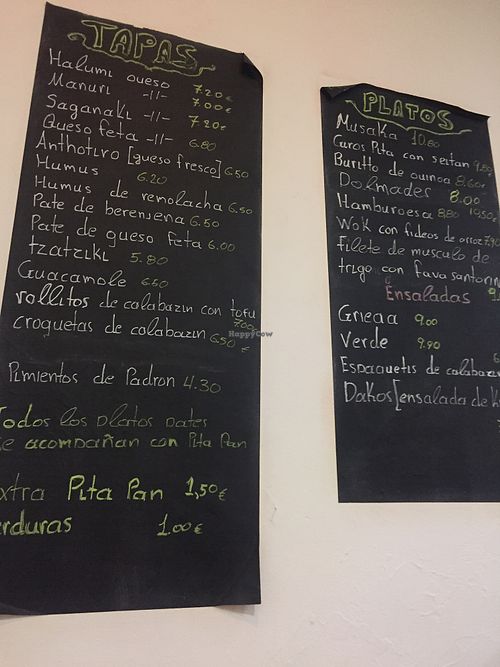 TAPAS
Halumi queso 7.20€
Manuri -11- 7.00€
Saganaki -11- 7.20€
Queso feta -11- 6.80
Anthotiro [queso fresco] 6.50
Humus 6.20
Humus de remolacha 6.50
Pate de berenjena 6.50
Pate de queso feta 6.00
tzatziki 5.80
Guacamole 6.60
rollitos de calabazin con tofu 7.00€
croquetas de calabazin 6.50€
Pimientos de Padron 4.30
Todos los platos pates
se acompañan con Pita Pan
Extra Pita Pan 1,50€
erduras 1.00€
PLATOS
Musaka 10.80
Guros Pita con seitan 9.80
Buritto de quinoa 8.60€
Dolmades 8.00
Hamburgesa 8.80 10.50€
Wok con fideos de arroz 7.90
Filete de musculo de
trigo con fava santorin
Ensaladas
Griega 9.00
Verde 9.90
Espaguetis de calabazin
Dakos [ensalada de
HappyCow